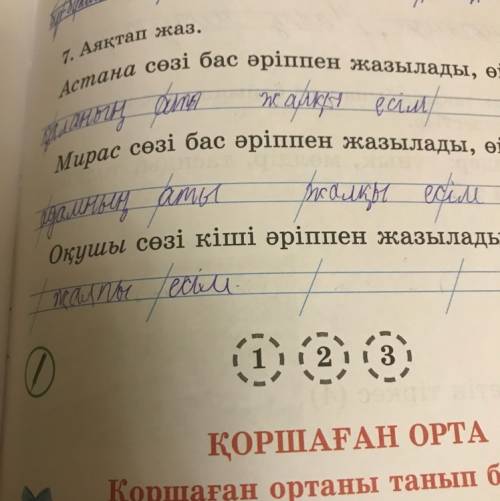 7. Аяқтап жаз.
Астана сөзі бас әріппен жазылады, өй
қаланың аты жалқы есім
Мирас сөзі бас әріппен жазылады, өй
адамның аты жалқы есім
Оқушы сөзі кіші әріппен жазылады
жалпы есім.
1 2 3
ҚОРШАҒАН ОРТА
Қоршаған ортаны танып б